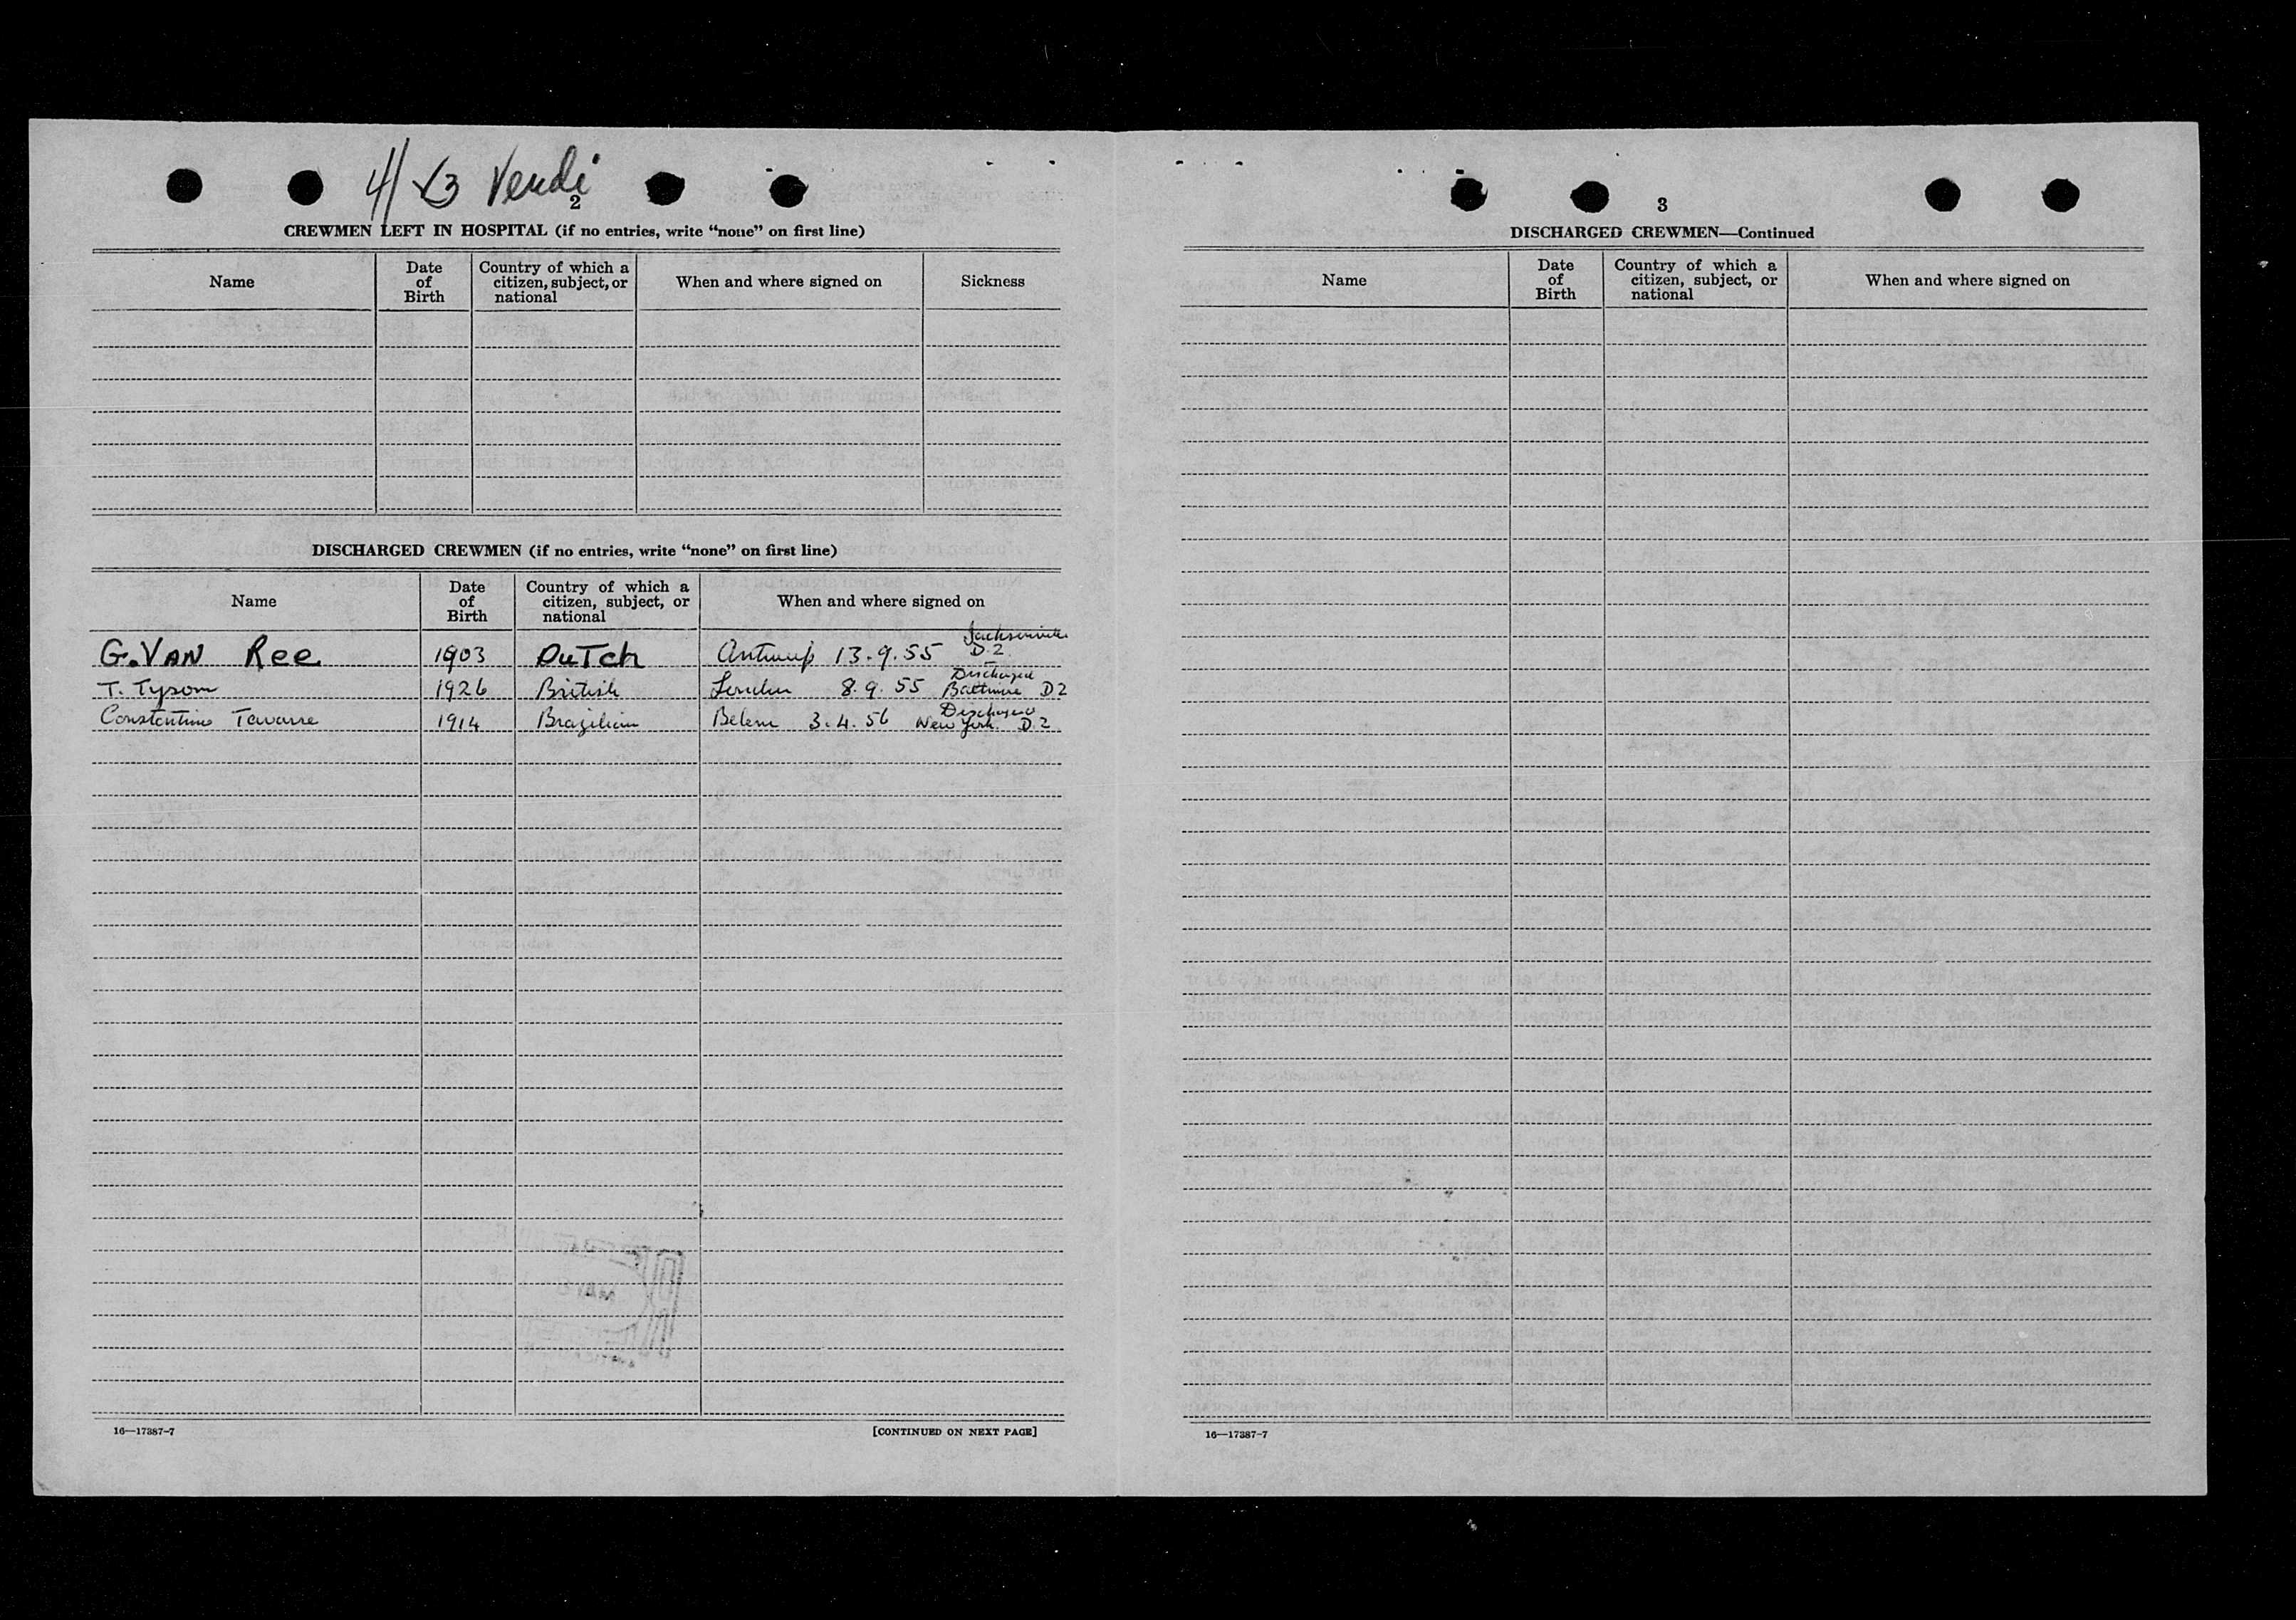 4/23 Vendi
2
CREWMEN LEFT IN HOSPITAL (if no entries, write "none" on first line)
Name
Date of Birth
Country of which a citizen, subject, or national
When and where signed on
Sickness
DISCHARGED CREWMEN (if no entries, write "none" on first line)
Name
Date of Birth
Country of which a citizen, subject, or national
When and where signed on
G. VAN Ree 1903 DuTch Antwerp 13.9.55 Jacksonville D.2
T. Tyson 1926 British London 8.9.55 Discharged Baltimore D2
Constantino Tavarre 1914 Brazilian Belem 3.4.56 Discharged New York. D.2
16—17387-7
[CONTINUED ON NEXT PAGE]
3
DISCHARGED CREWMEN—Continued
Name
Date of Birth
Country of which a citizen, subject, or national
When and where signed on
16—17387-7